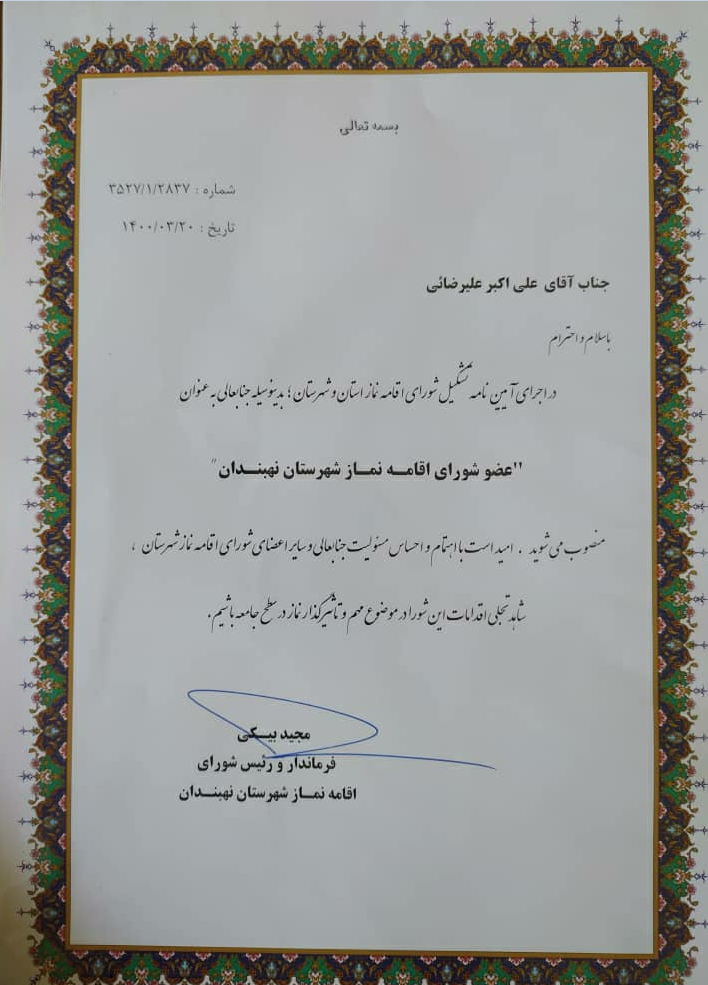 بسمه تعالی
شماره : ۳۵۲۷/۱/۲۸۳۷
تاریخ : ۱۴۰۰/۰۳/۲۰
جناب آقای علی اکبر علیرضائی
باسلام و احترام
در اجرای آیین نامه تشکیل شورای اقامه نماز استان و شهرستان ؛ بدینوسیله جنابعالی به عنوان
"عضو شورای اقامـه نمـاز شهرستان نهبنـدان"
منصوب می شوید . امید است با اهتمام و احساس مسئولیت جنابعالی و سایر اعضای شورای اقامه نماز شهرستان ،
شاهد تجلی اقدامات این شورا در موضوع مهم و تاثیرگذار نماز در سطح جامعه باشیم.
مجید بیـکی
فرماندار و رئیس شورای
اقامه نمـاز شهرستان نهبنـدان